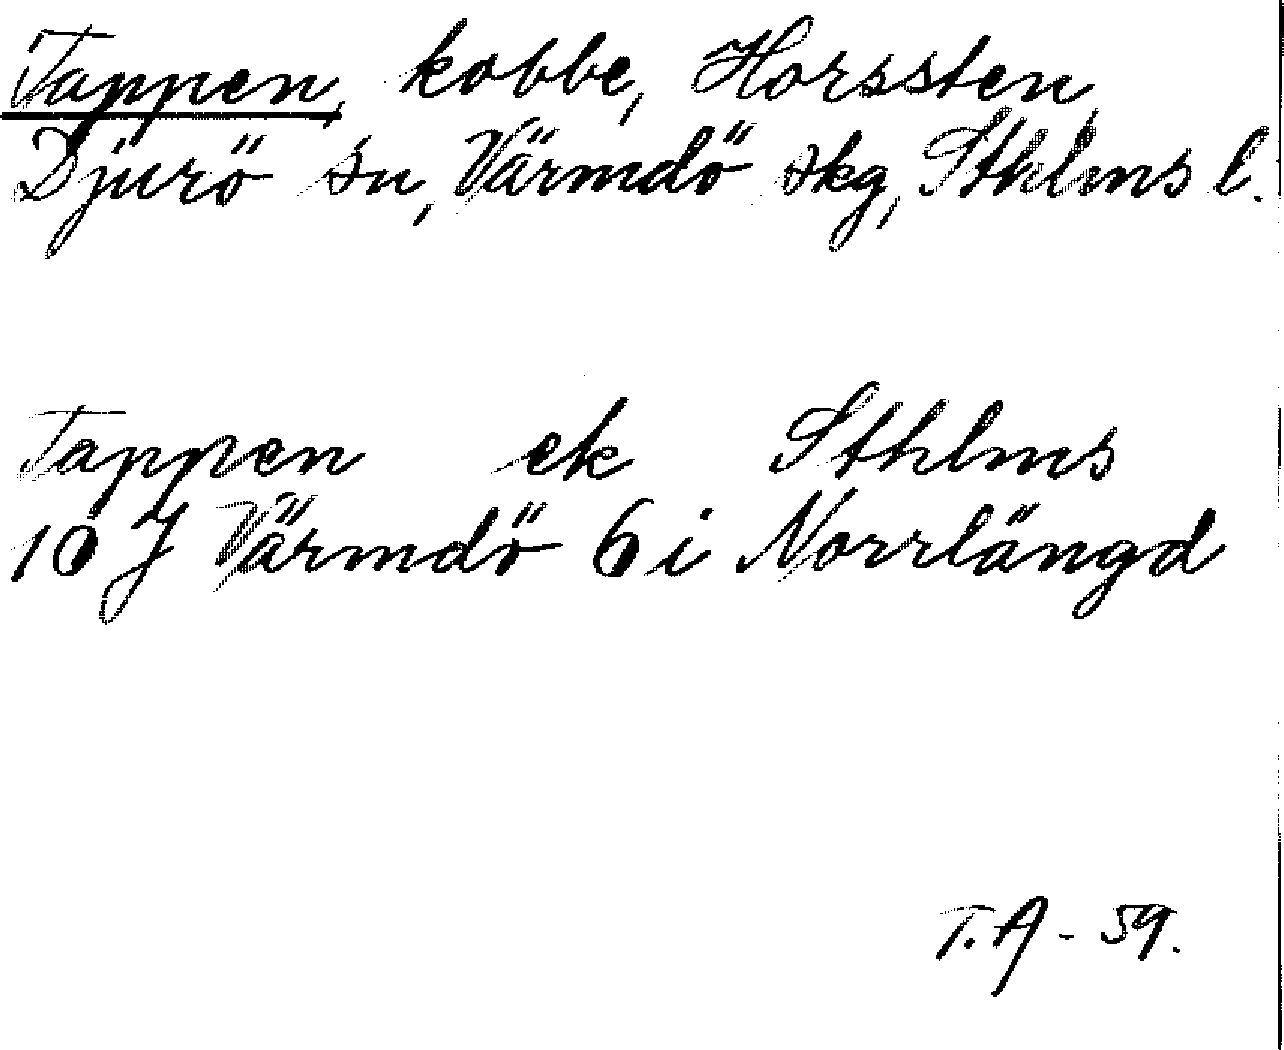 Tappen, kobbe, Horssten,
Djurö sn, Värmdö skg, Sthlms l.
Tappen ek Sthlms
10 J Värmdö 6 i Norrlängd
T. A - 59.